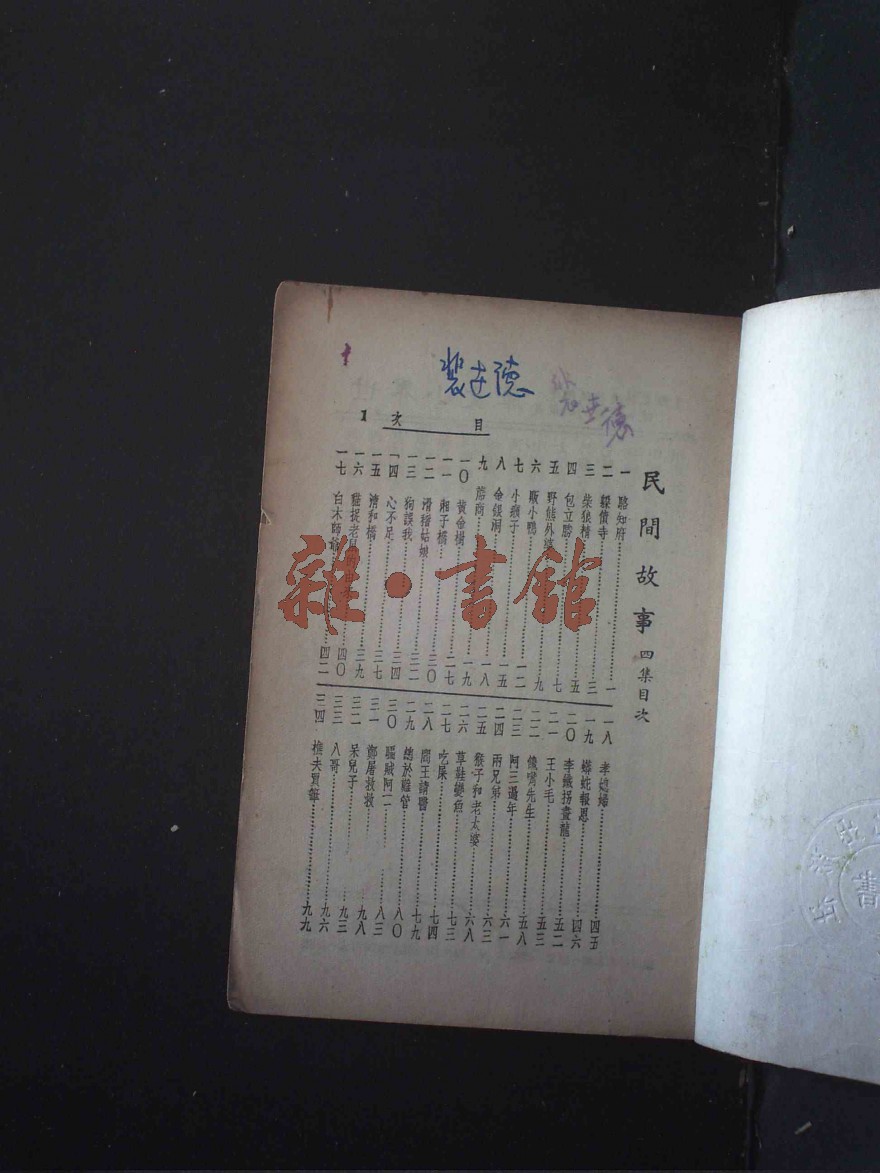 裴世德
裴世德
目 次 1
民間故事 四集目次
一 駱知府……一
二 躲債寺……三
三 柴狼精……五
四 包立勝……五
五 野熊外婆……七
六 販小鴨……九
七 小癩子……一二
八 金銀洞……一五
九 茄商……一八
一〇 黃金楊……一九
一一 湘子橋……二七
一二 滑稽姑娘……三〇
一三 狗誤我……三二
一四 心不足……三四
一五 清和橋……三七
一六 貓捉老鼠……三九
四〇
一七 白木師爺……四二
一八 孝媳婦……四五
一九 蟒蛇報恩……四六
二〇 李鐵拐畫龍……五二
二一 王小毛……五三
二二 饞嘴先生……五八
二三 阿三過年……六一
二四 兩兄弟……六三
二五 猴子和老太婆……六八
二六 草鞋變魚……七三
二七 吃屎……七四
二八 閻王請醫……七九
二九 總於難管……八〇
三〇 騙賊阿二……八三
三一 鄭屠救救……九八
三二 呆兒子……九三
三三 八哥……九六
三四 樵夫買鉦……九九
雜·書館
書